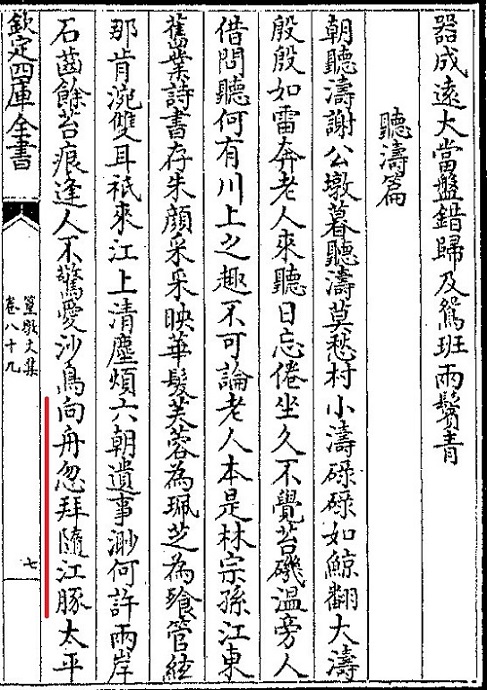 器成遠大當盤錯歸及鴛班兩鬢青
聽濤篇
朝聽濤謝公墩暮聽濤莫愁村小濤碌碌如鯨翻大濤
殷殷如雷奔老人來聽日忘倦坐久不覺苔磯溫旁人
借問聽何有川上之趣不可論老人本是林宗孫江東
舊業詩書存朱顔采采映華髮芙蓉為珮芝為飱管絃
那肯涴雙耳秪來江上清塵煩六朝遺事渺何許兩岸
石齒餘苔痕逢人不驚愛沙鳥向舟忽拜隨江豚太平
欽定四庫全書
篁墩文集
卷八十九
七